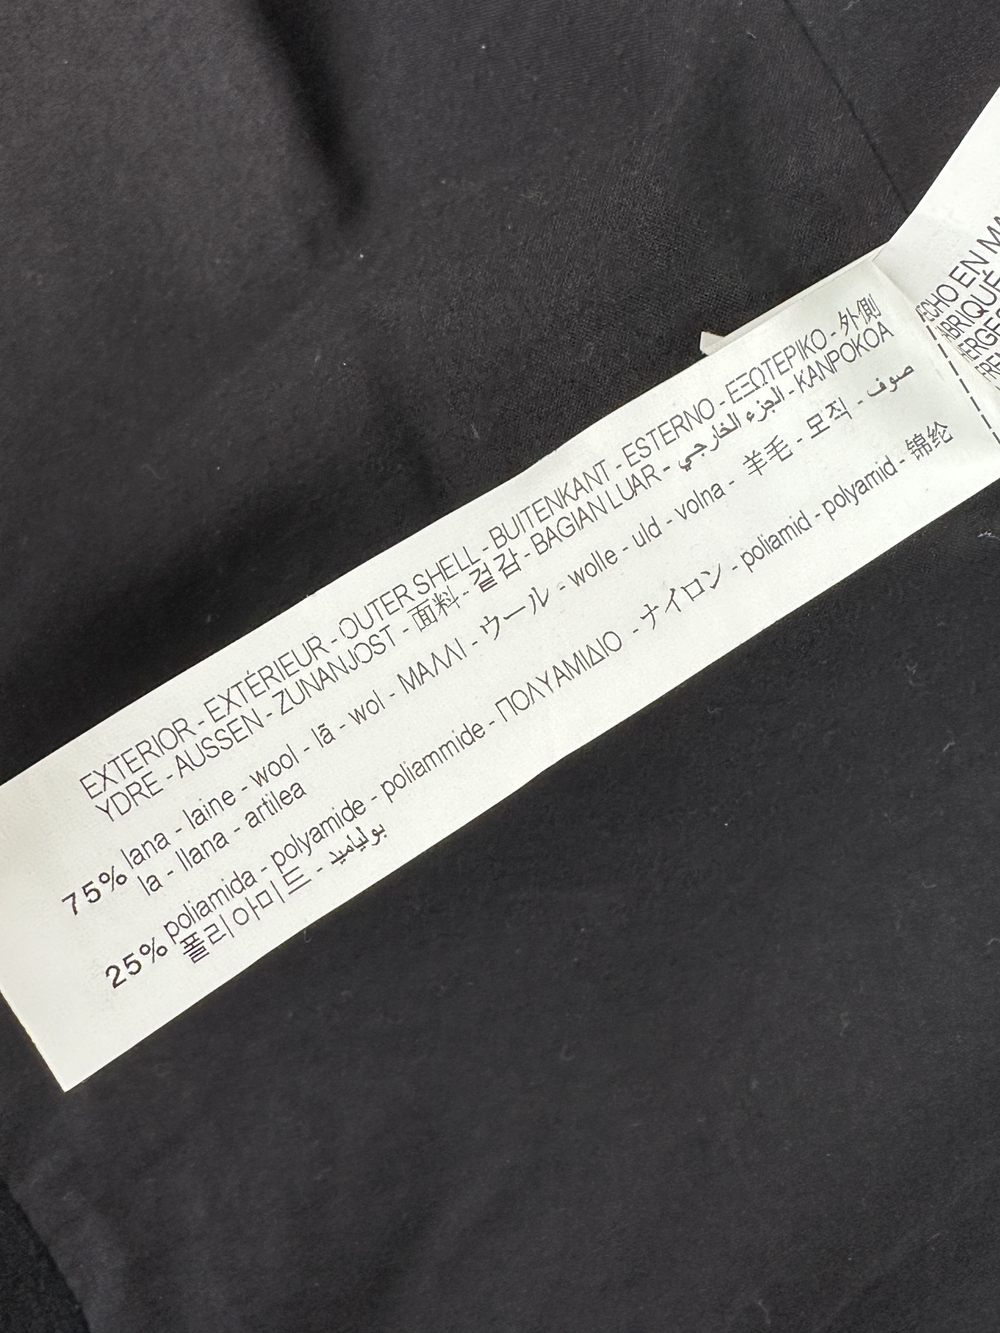 EXTERIOR - EXTÉRIEUR - OUTER SHELL - BUITENKANT - ESTERNO - ΕΞΩΤΕΡΙΚΟ - 外側
YDRE - AUSSEN - ZUNANJOST - 面料 - 겉감 - BAGIAN LUAR - الجزء الخارجي - KANPOKOA
75% lana - laine - wool - lã - wol - ΜΑΛΛΙ - ウール - wolle - uld - volna - 羊毛 - 모직 - صوف
la - llana - artilea
25% poliamida - polyamide - poliammide - ΠΟΛΥΑΜΙΔΙΟ - ナイロン - poliamid - polyamid - 锦纶
폴리아미드 - بولياميد
ECHO EN MA
ABRIQUÉ